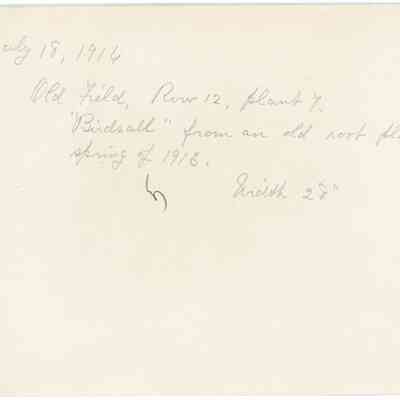 July 18, 1916
Old Field, Row 12, plant 7.
"Birdsall" from an old root
spring of 1913.
Width 28"